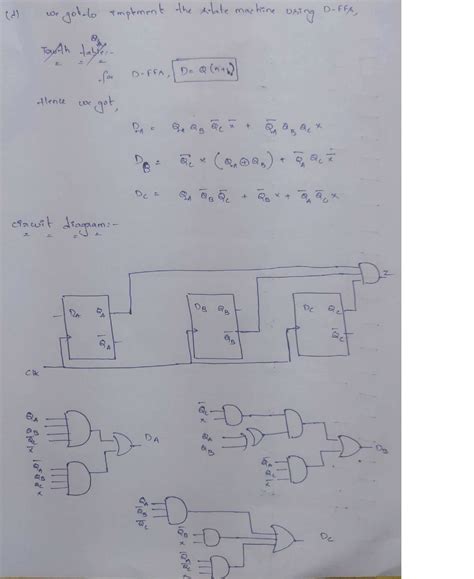 (d) we got to implement the state machine using D-FFs,
Truth table:-
for D-FFs, D = Q(n+1)
Hence we got,
D_A = Q_A Q_B Q̅_C x̅ + Q̅_A Q_B Q_C x
D_B = Q̅_C x (Q_A ⊕ Q_B) + Q̅_A Q_C x̅
D_C = Q_A Q̅_B Q̅_C + Q̅_B x + Q̅_A Q̅_C x
circuit diagram:-
Z
D_A Q_A D_B Q_B D_C Q_C
Q̅_A Q̅_B Q̅_C
CLK
Q_A
Q_B
Q̅_C
x̅
Q̅_A
Q_B
Q_C
x
D_A
Q̅_C
x
Q_A
Q_B
Q̅_A
Q_C
x̅
D_B
Q_A
Q̅_B
Q̅_C
Q̅_B
x
Q̅_A
Q̅_C
x
D_C